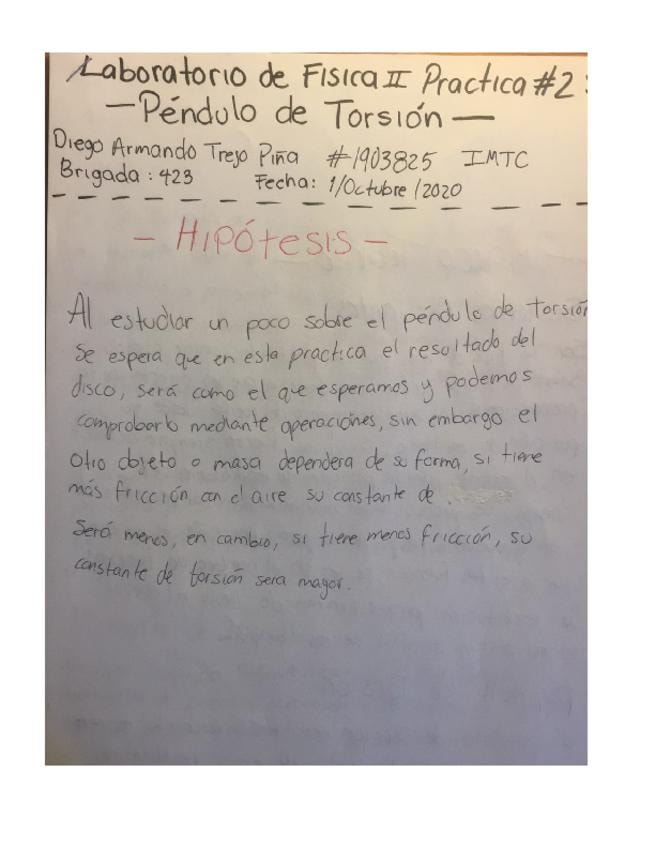 Laboratorio de Fisica II Practica #2:
— Péndulo de Torsión —
Diego Armando Trejo Piña #1903825 IMTC
Brigada: 423 Fecha: 1/Octubre/2020
- Hipótesis -
Al estudiar un poco sobre el péndulo de torsión
se espera que en esta practica el resultado del
disco, será como el que esperamos y podemos
comprobarlo mediante operaciones, sin embargo el
otro objeto o masa dependera de su forma, si tiene
más fricción con el aire su constante de
Será menos, en cambio, si tiene menos fricción, su
constante de torsión sera mayor.